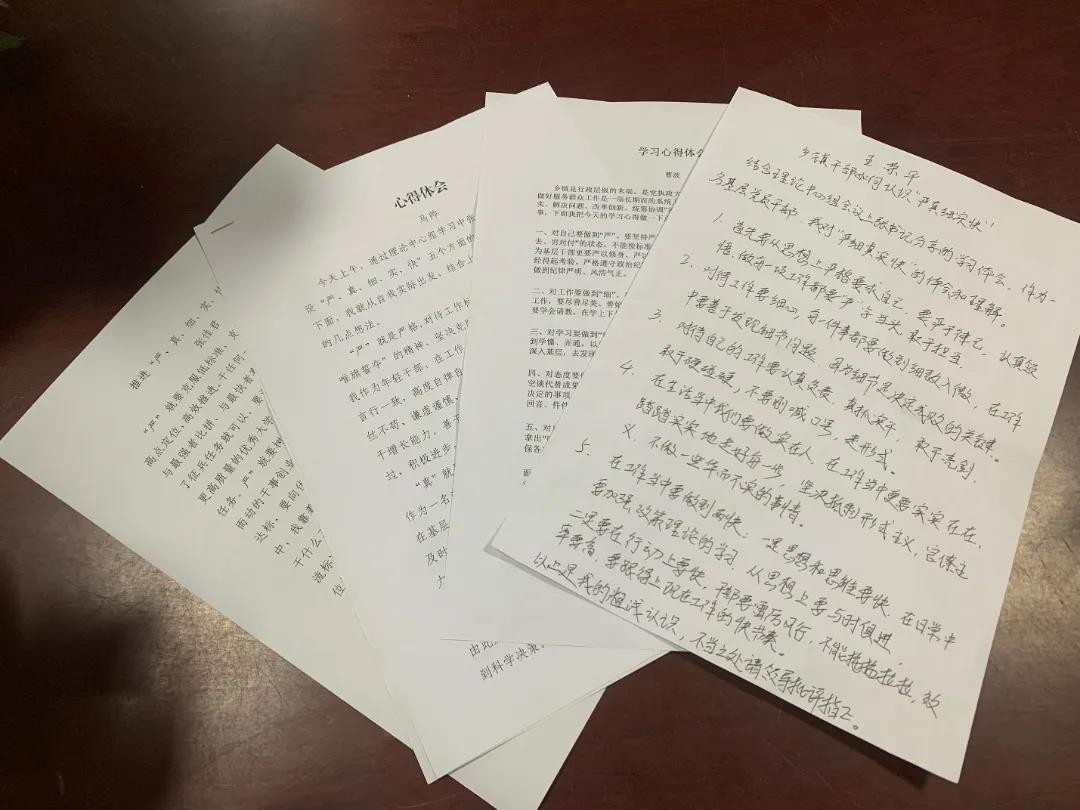 推进“严、真、细、实、快
张佳君
“严”就要克服低标准,
高点定位,高效推进,干任何
与最强者比拼,与最快者
了征兵任务就可以,要
更高质量的优秀大学
任务。严”就要
而动的干事创业
达标,要向
中,我靠
干什么
流标
位
心得体会
马烨
今天上午,通过理论中心组学习中张
谈“严、真、细、实、快”五个方面的
下面,我就从自我实际出发,结合
的几点想法。
“严”就是严格,对待工作标
唯旗誓夺”的精神、坚决克
我作为年轻干部,在工作
言行一致、高度自律自
丝不苟:谦虚谨慎,
干增长能力,兼
过,积极进步
“真”就
作为一名
在基层
及时
由此
到科学决策。
学习心得体会
曹波
乡镇是行政层级的末端,是党执政
做好服务群众工作是一项长期而的系统
实、解决问题、改革创新、统筹协调”
事,下面我把今天的学习心得做一下
一、对自己要做到“严”。要坚持严
去、穷对付”的状态,不能按标准
为基层干部更要严以修身,严以
经得起考验,严格遵守政治纪
做到纪律严明、风清气正。
二、对工作要做到“细”。
工作,要尽善尽美、善始
要学会请教,在学上下
三、对学习要做到“
到学懂、弄通,以
深入基层,去发现
四、对态度要
空谈代替成果
决定的事项
回音、件件
五、对
拿出“
保各
王荣华
乡镇干部如何认识“严真细实快”
结合理论中心组会议上张书记分享的学习体会,作为一
名基层党员干部,我对“严细真实快”的体会和理解。
1. 首先要从思想上严格要求自己,要严于律己,认真短
悟,做每一项工作都要“严”字当头,敢于担当。
2. 对待工作要细心,每一件事都要做到细致入微,在工作
中要善于发现细节问题,因为细节是决定成败的关键。
3. 对待自己的工作要认真负责,真抓实干,敢于亮剑,
敢于硬碰硬,不要刚喊口号,走形式。
4. 在生活当中我们要做实在人,在工作当中更要实实在在,
踏踏实实地走好每一步,坚决抵制形式主义,官僚主
义,不做一些华而不实的事情。
5. 在工作当中要做到两快:一是思想和思维要快,在日常中
要加强政策理论的学习,从思想上要与时俱进,
二是要在行动上要快,干部要雷厉风行,不能拖拖拉拉,效
率要高,要跟得上现在工作的快节奏。
以上是我的粗浅认识,不当之处请领导批评指正。